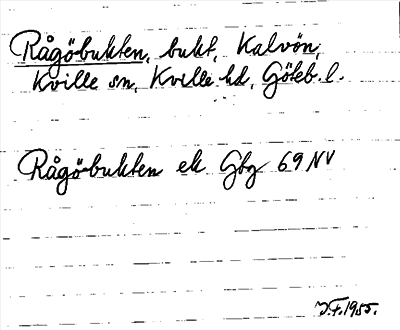 Rågöbukten, bukt, Kalvön,
Kville sn, Kville hd, Göteb. l.
Rågöbukten ek Gbg 69 NV
J.F. 1955.